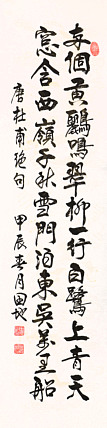 兩個黃鸝鳴翠柳一行白鷺上青天
窓含西嶺千秋雪門泊東吳萬里船
唐杜甫絕句 甲辰春月田地